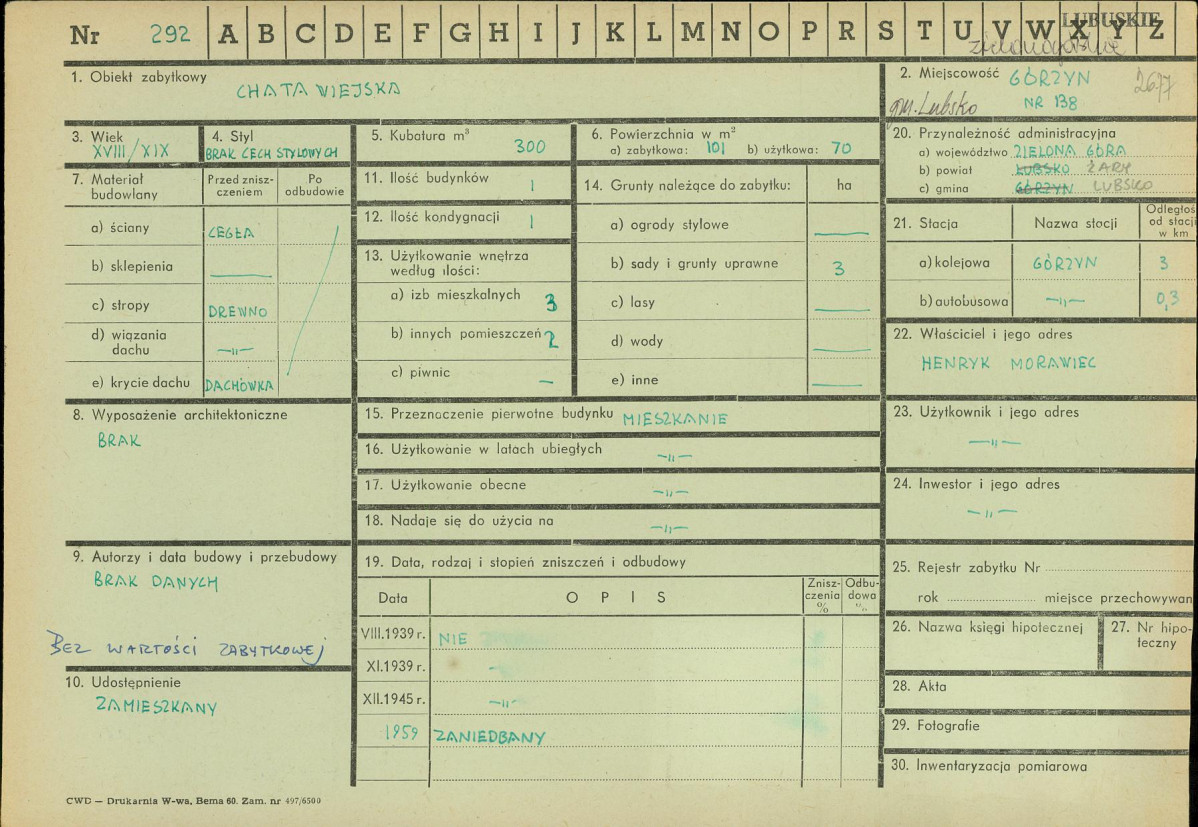 LUBUSKIE
Nr 292 A B C D E F G H I J K L M N O P R S T U V W X Y Z
zielonogórskie
1. Obiekt zabytkowy
CHATA WIEJSKA
2. Miejscowość GÓRZYN 2677
gm. Lubsko NR 138
3. Wiek
XVIII/XIX
4. Styl
BRAK CECH STYLOWYCH
5. Kubatura m³
300
6. Powierzchnia w m²
a) zabytkowa: 101 b) użytkowa: 70
20. Przynależność administracyjna
a) województwo ZIELONA GÓRA
b) powiat LUBSKO ŻARY
c) gmina GÓRZYN LUBSKO
7. Materiał budowlany
Przed znisz-
czeniem
Po
odbudowie
a) ściany CEGŁA
b) sklepienia —
c) stropy DREWNO
d) wiązania
dachu —„—
e) krycie dachu DACHÓWKA
11. Ilość budynków 1
12. Ilość kondygnacji 1
13. Użytkowanie wnętrza
według ilości:
a) izb mieszkalnych 3
b) innych pomieszczeń 2
c) piwnic —
14. Grunty należące do zabytku: ha
a) ogrody stylowe —
b) sady i grunty uprawne 3
c) lasy —
d) wody —
e) inne —
21. Stacja Nazwa stacji Odległoś
od stacji
w km
a) kolejowa GÓRZYN 3
b) autobusowa —„— 0,3
22. Właściciel i jego adres
HENRYK MORAWIEC
8. Wyposażenie architektoniczne
BRAK
15. Przeznaczenie pierwotne budynku MIESZKANIE
16. Użytkowanie w latach ubiegłych —„—
17. Użytkowanie obecne —„—
18. Nadaje się do użycia na —„—
23. Użytkownik i jego adres
—„—
24. Inwestor i jego adres
—„—
9. Autorzy i data budowy i przebudowy
BRAK DANYCH
BEZ WARTOŚCI ZABYTKOWEJ
10. Udostępnienie
ZAMIESZKANY
19. Data, rodzaj i stopień zniszczeń i odbudowy
Data OPIS Znisz-
czenia
%
Odbu-
dowa
%
VIII.1939 r. NIE
XI.1939 r. —„—
XII.1945 r. —„—
1959 ZANIEDBANY
25. Rejestr zabytku Nr
rok miejsce przechowywan
26. Nazwa księgi hipotecznej
27. Nr hipo-
teczny
28. Akta
29. Fotografie
30. Inwentaryzacja pomiarowa
CWD — Drukarnia W-wa, Bema 60. Zam. nr 497/6500